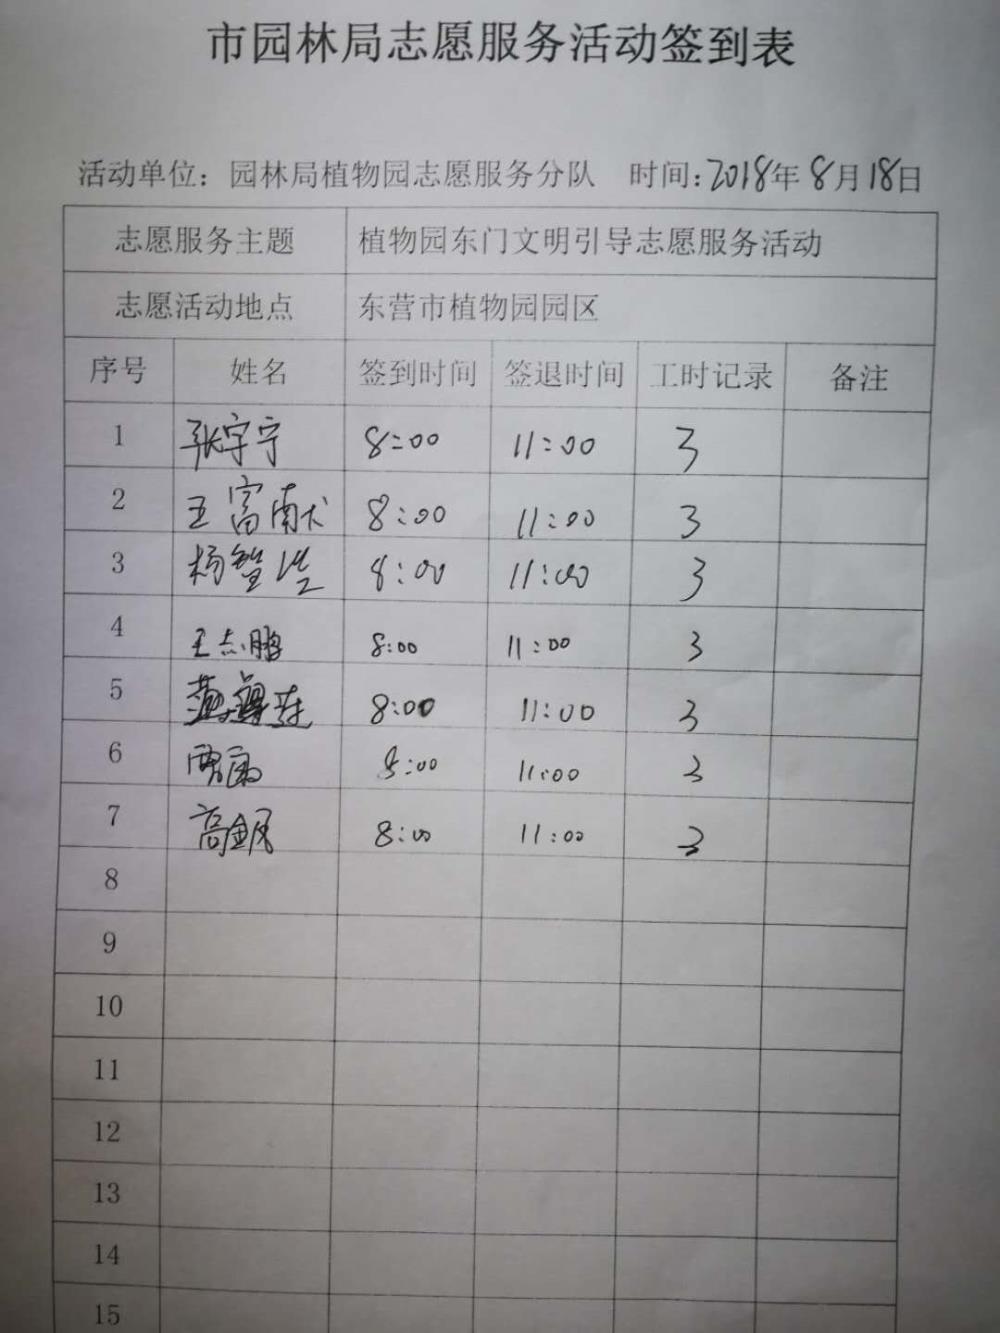 市园林局志愿服务活动签到表
活动单位：园林局植物园志愿服务分队 时间：2018年8月18日
志愿服务主题 植物园东门文明引导志愿服务活动
志愿活动地点 东营市植物园园区
序号 姓名 签到时间 签退时间 工时记录 备注
1 张宇宁 8:00 11:00 3
2 王富献 8:00 11:00 3
3 杨 8:00 11:00 3
4 王志鹏 8:00 11:00 3
5 8:00 11:00 3
6 8:00 11:00 3
7 高 8:00 11:00 3
8
9
10
11
12
13
14
15